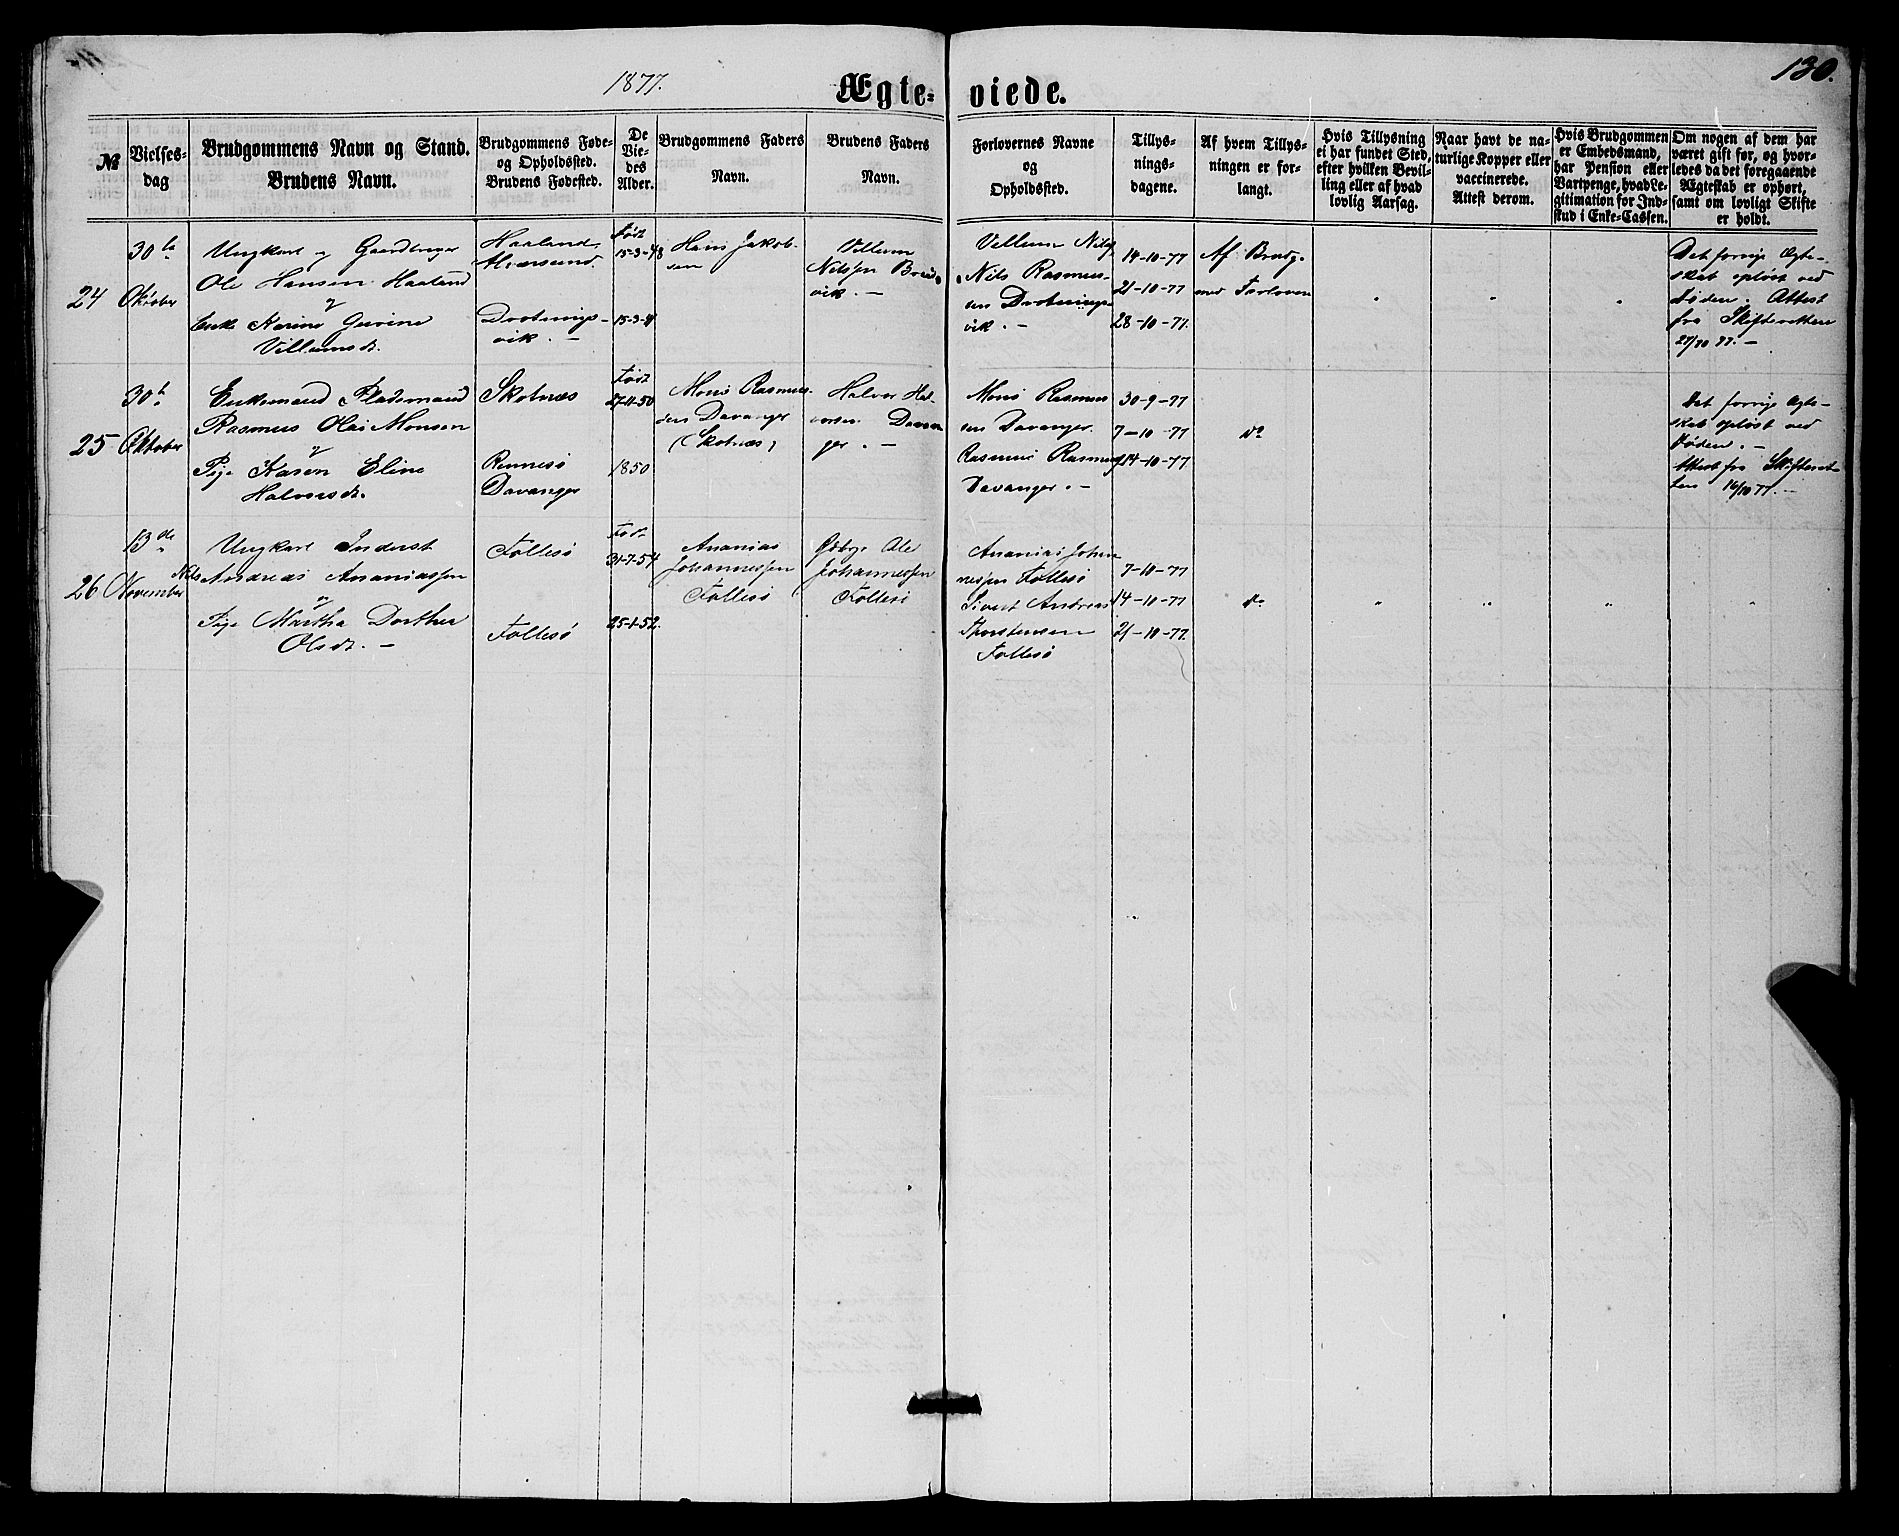 1877.
Ægte-
viede.
130.
№
Vielses-
dag
Brudgommens Navn og Stand.
Brudens Navn.
Brudgommens Føde-
og Opholdssted.
Brudens Fødested.
De
Vie-
des
Alder.
Brudgommens Faders
Navn.
Brudens Faders
Navn.
Forlovernes Navne
og
Opholdssted.
Tillys-
nings-
dagene.
Af hvem Tillys-
ningen er for-
langt.
Hvis Tillysning
ei har fundet Sted,
efter hvilken Bevil-
ling eller af hvad
lovlig Aarsag.
Naar havt de na-
turlige Kopper eller
vaccinerede.
Attest derom.
Hvis Brudgommen
er Embedsmand,
har Pension eller
Vartpenge, hvad Le-
gitimation for Ind-
skud i Enke-Cassen.
Om nogen af dem har
været gift før, og hvor-
ledes da det foregaaende
Ægteskab er ophørt,
samt om lovligt Skifte
er holdt.
24
30
Oktober
Ungkarl
Ole Hansen Haaland
Enke Karine
Villumsdr.
Haaland
Alversund.
Drotnings-
vik. —
Født
15-3-48
Hans Jakob-
sen
Villum
Nilssen
vik. —
Villum Nils
Nils Rasmus-
sen Drotnings-
vik. —
14-10-77
21-10-77
28-10-77.
Af Brudg.
med Forlovere
"
"
"
Det forrige Ægte-
skab opløst ved
Døden. Attest
fra Skifteretten
27/10 77. —
25
30
Oktober
Enkemand Pladsmand
Rasmus Olai Monsen
Pige Karen Eline
Halvorsdr.
Skotnæs
Rennesø
Davanger
Født
27-11-50
1850
Mons Rasmus-
sen Davanger
(Skotnæs)
Halvor Hal-
vorsen Davan
ger. —
Mons Rasmus
sen Davanger.
Rasmus Rasmus
Davanger. —
30-9-77
7-10-77
14-10-77
do
Det forrige Ægte-
skab opløst ved
Døden. —
Attest fra Skifteret-
ten 16/10 77. —
26
13de
November
Ungkarl Inderst
Nils Andreas Ananiassen
Pige Martha Dorthea
Olsdr. —
Follesø
Follesø
Født
31-7-54
25-1-52.
Ananias
Johannessen
Follesø
Ole
Johannessen
Follesø
Ananias Johan
nessen Follesø
Sivert Andreas
Thorstensen
Follesø
7-10-77
14-10-77
21-10-77
do
"
"
"
"